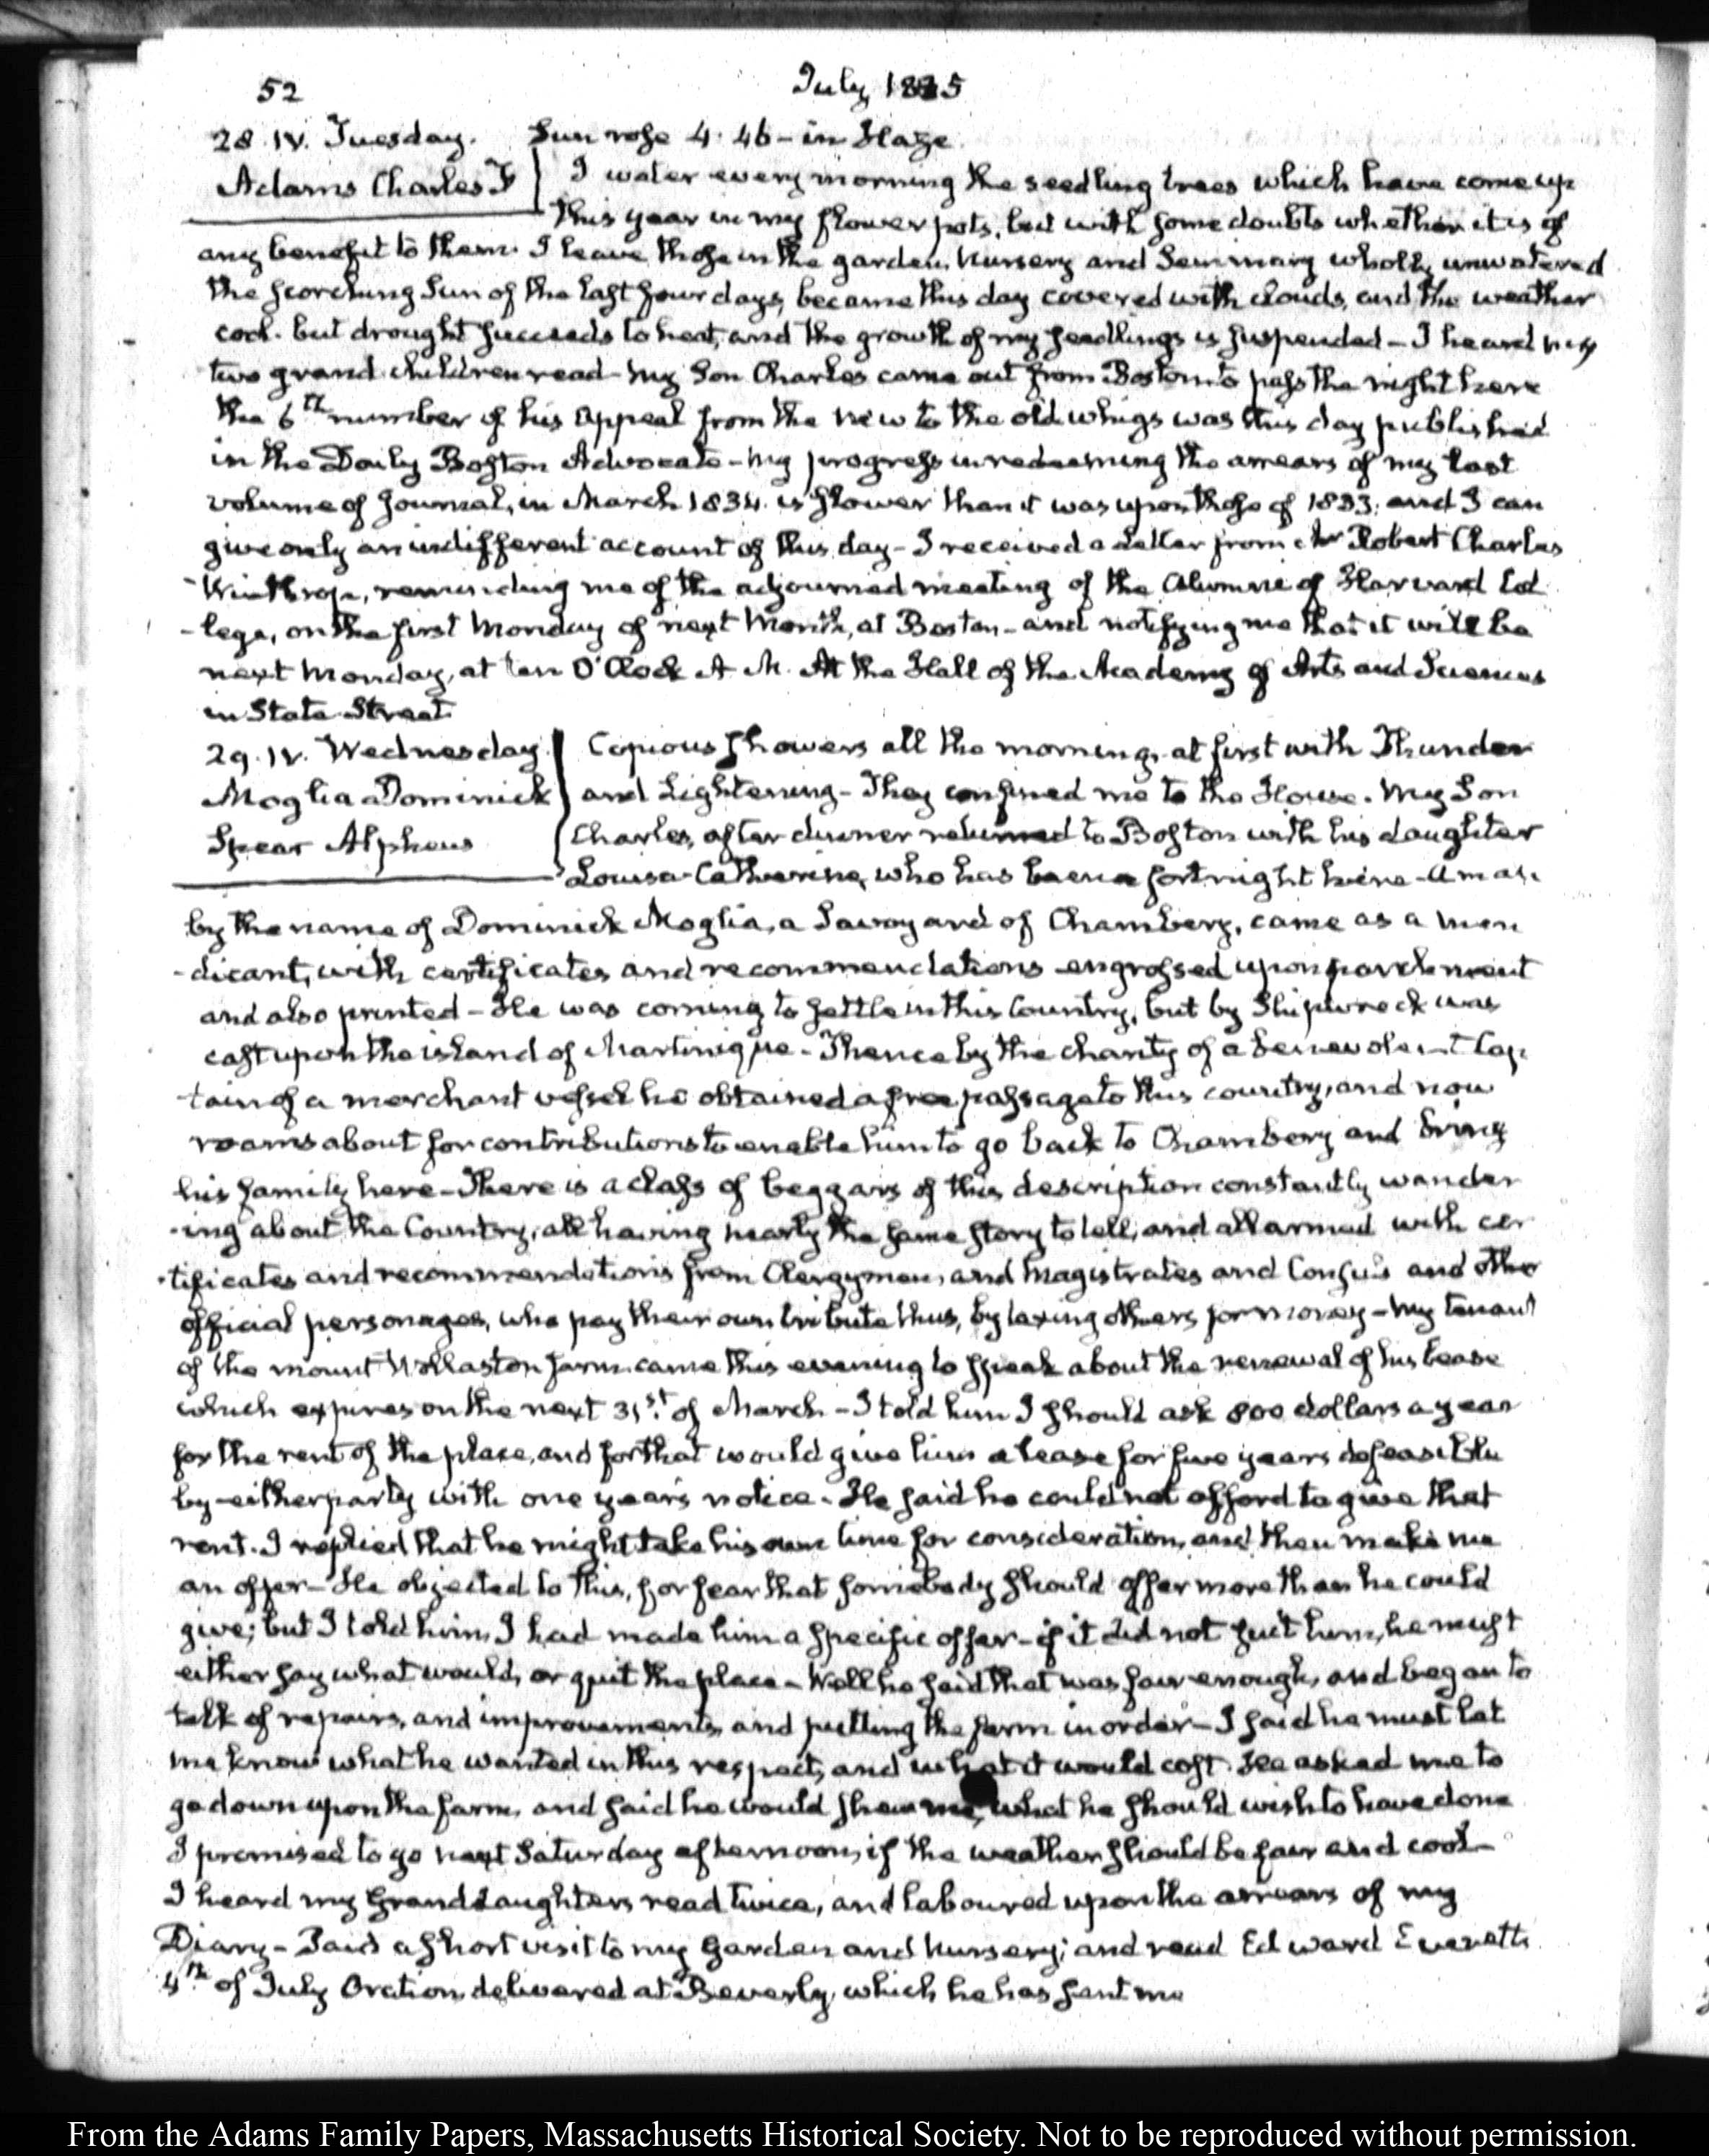 52
July 1835
28. IV. Tuesday. Sun rose 4. 46 - in Haze.
Adams Charles F I water every morning the seedling trees which have come up
this year in my flower pots, but with some doubts whether it is of
any benefit to them. I leave those in the garden, Nursery and Seminary wholly unwatered
the scorching Sun of the last four days, became this day covered with clouds, and the weather
cool. but drought succeeds to heat, and the growth of my seedlings is suspended - I heard my
two grand children read - My Son Charles came out from Boston to pass the night here
the 6th number of his appeal from the new to the old whigs was this day published
in the Daily Boston Advocate - My progress in redeeming the arrears of my last
volume of Journal, in March 1834. is slower than it was upon those of 1833: and I can
give only an indifferent account of this day - I received a Letter from Mr Robert Charles
Winthrop, reminding me of the adjourned meeting of the Alumni of Harvard Col
-lege, on the first Monday of next Month, at Boston - and notifying me that it will be
next Monday, at ten O'Clock A. M. At the Hall of the Academy of Arts and Sciences
in State Street.
29. IV. Wednesday Copious showers all the morning, at first with Thunder
Moglia Dominick and Lightening - They confined me to the House. My Son
Spear Alpheus Charles, after dinner returned to Boston with his daughter
Louisa Catherine, who has been a fortnight here - A man
by the name of Dominick Moglia, a Savoyard of Chambery, came as a men
-dicant, with certificates and recommendations engrossed upon parchment
and also printed - He was coming to settle in this Country, but by Shipwreck was
cast upon the island of Martinique - Thence by the charity of a benevolent Cap
-tain of a merchant vessel he obtained a free passage to this country, and now
roams about for contributions to enable him to go back to Chambery and bring
his family here - There is a class of beggars of this description constantly wander
-ing about the Country, all having nearly the same story to tell, and all armed with cer
-tificates and recommendations from Clergymen, and Magistrates and Consuls and other
official personages, who pay their own tribute thus, by taxing others for money - My tenant
of the mount Wollaston farm came this evening to speak about the renewal of his lease
which expires on the next 31st of March - I told him I should ask 800 dollars a year
for the rent of the place, and for that would give him a lease for five years defeasible
by either party with one year's notice. He said he could not afford to give that
rent. I replied that he might take his own time for consideration, and then make me
an offer - He objected to this, for fear that somebody should offer more than he could
give; but I told him, I had made him a specific offer - if it did not suit him, he must
either say what would, or quit the place - Well he said that was fair enough, and began to
talk of repairs, and improvements, and putting the farm in order - I said he must let
me know what he wanted in this respect, and what it would cost. He asked me to
go down upon the farm, and said he would shew me, what he should wish to have done
I promised to go next Saturday afternoon, if the weather should be fair and cool -
I heard my Grand daughters read twice, and laboured upon the arrears of my
Diary - Paid a short visit to my Garden and Nursery; and read Edward Everett's
4th of July Oration, delivered at Beverly, which he has sent me
From the Adams Family Papers, Massachusetts Historical Society. Not to be reproduced without permission.